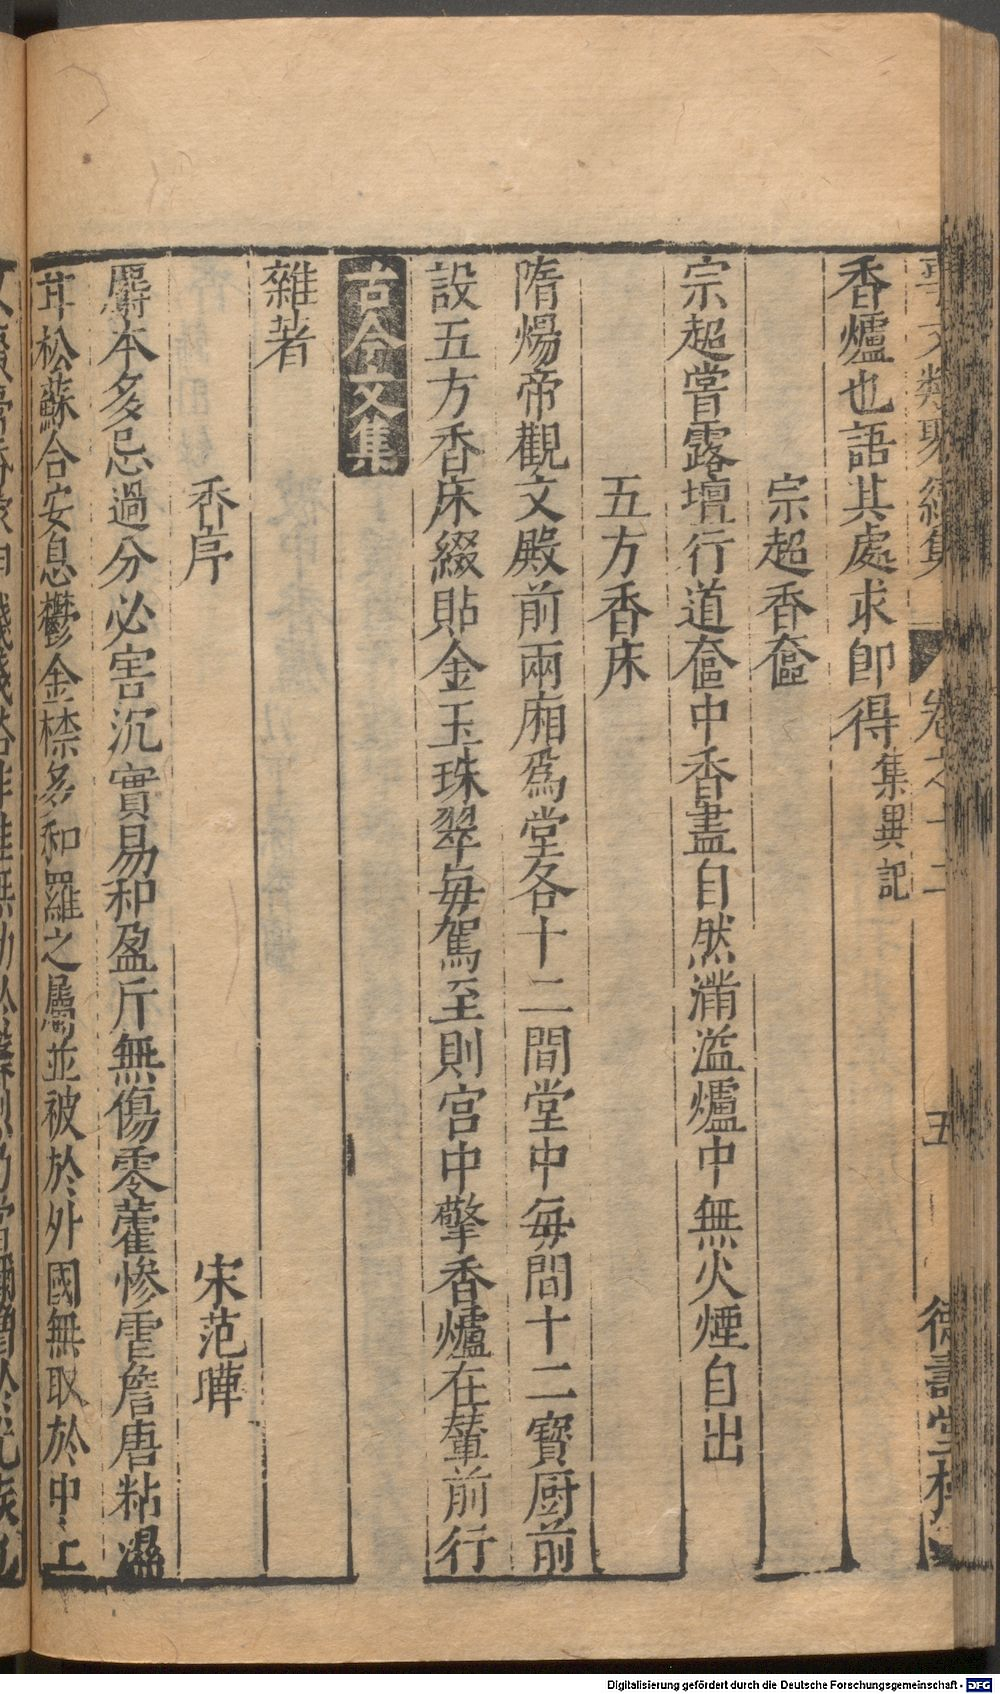 事文類聚續集 卷之十二 五 德壽堂梓
香爐也語其處求即得集異記
宗超香奩
宗超嘗露壇行道奩中香盡自然滿溢爐中無火煙自出
五方香床
隋煬帝觀文殿前兩廂爲堂各十二間堂中每間十二寶厨前
設五方香床綴貼金玉珠翠每駕至則宫中擎香爐在輦前行
古今文集
雜著
香序 宋范曄
麝本多忌過分必害沉實易和盈斤無傷零藿慘雹詹唐粘濕
甘松蘇合安息鬱金㮈多和羅之屬並被於外國無取於中土
Digitalisierung gefördert durch die Deutsche Forschungsgemeinschaft - DFG